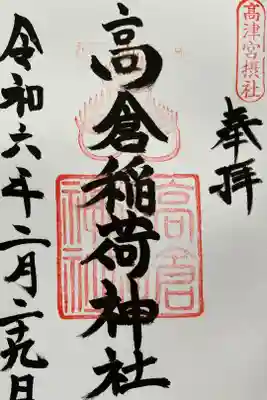 高津宮摂社
奉拝
高倉稲荷神社
高倉
神社
令和六年二月二十九日